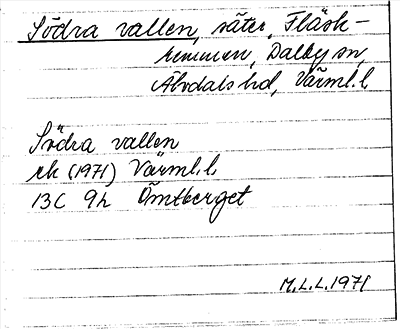 Södra vallen, säter, Fläsk-
remmen, Dalby sn,
Älvdals hd, Värml. l.
Södra vallen
ek (1971) Värml. l.
13C 9h Ömtberget
M.L.L. 1971